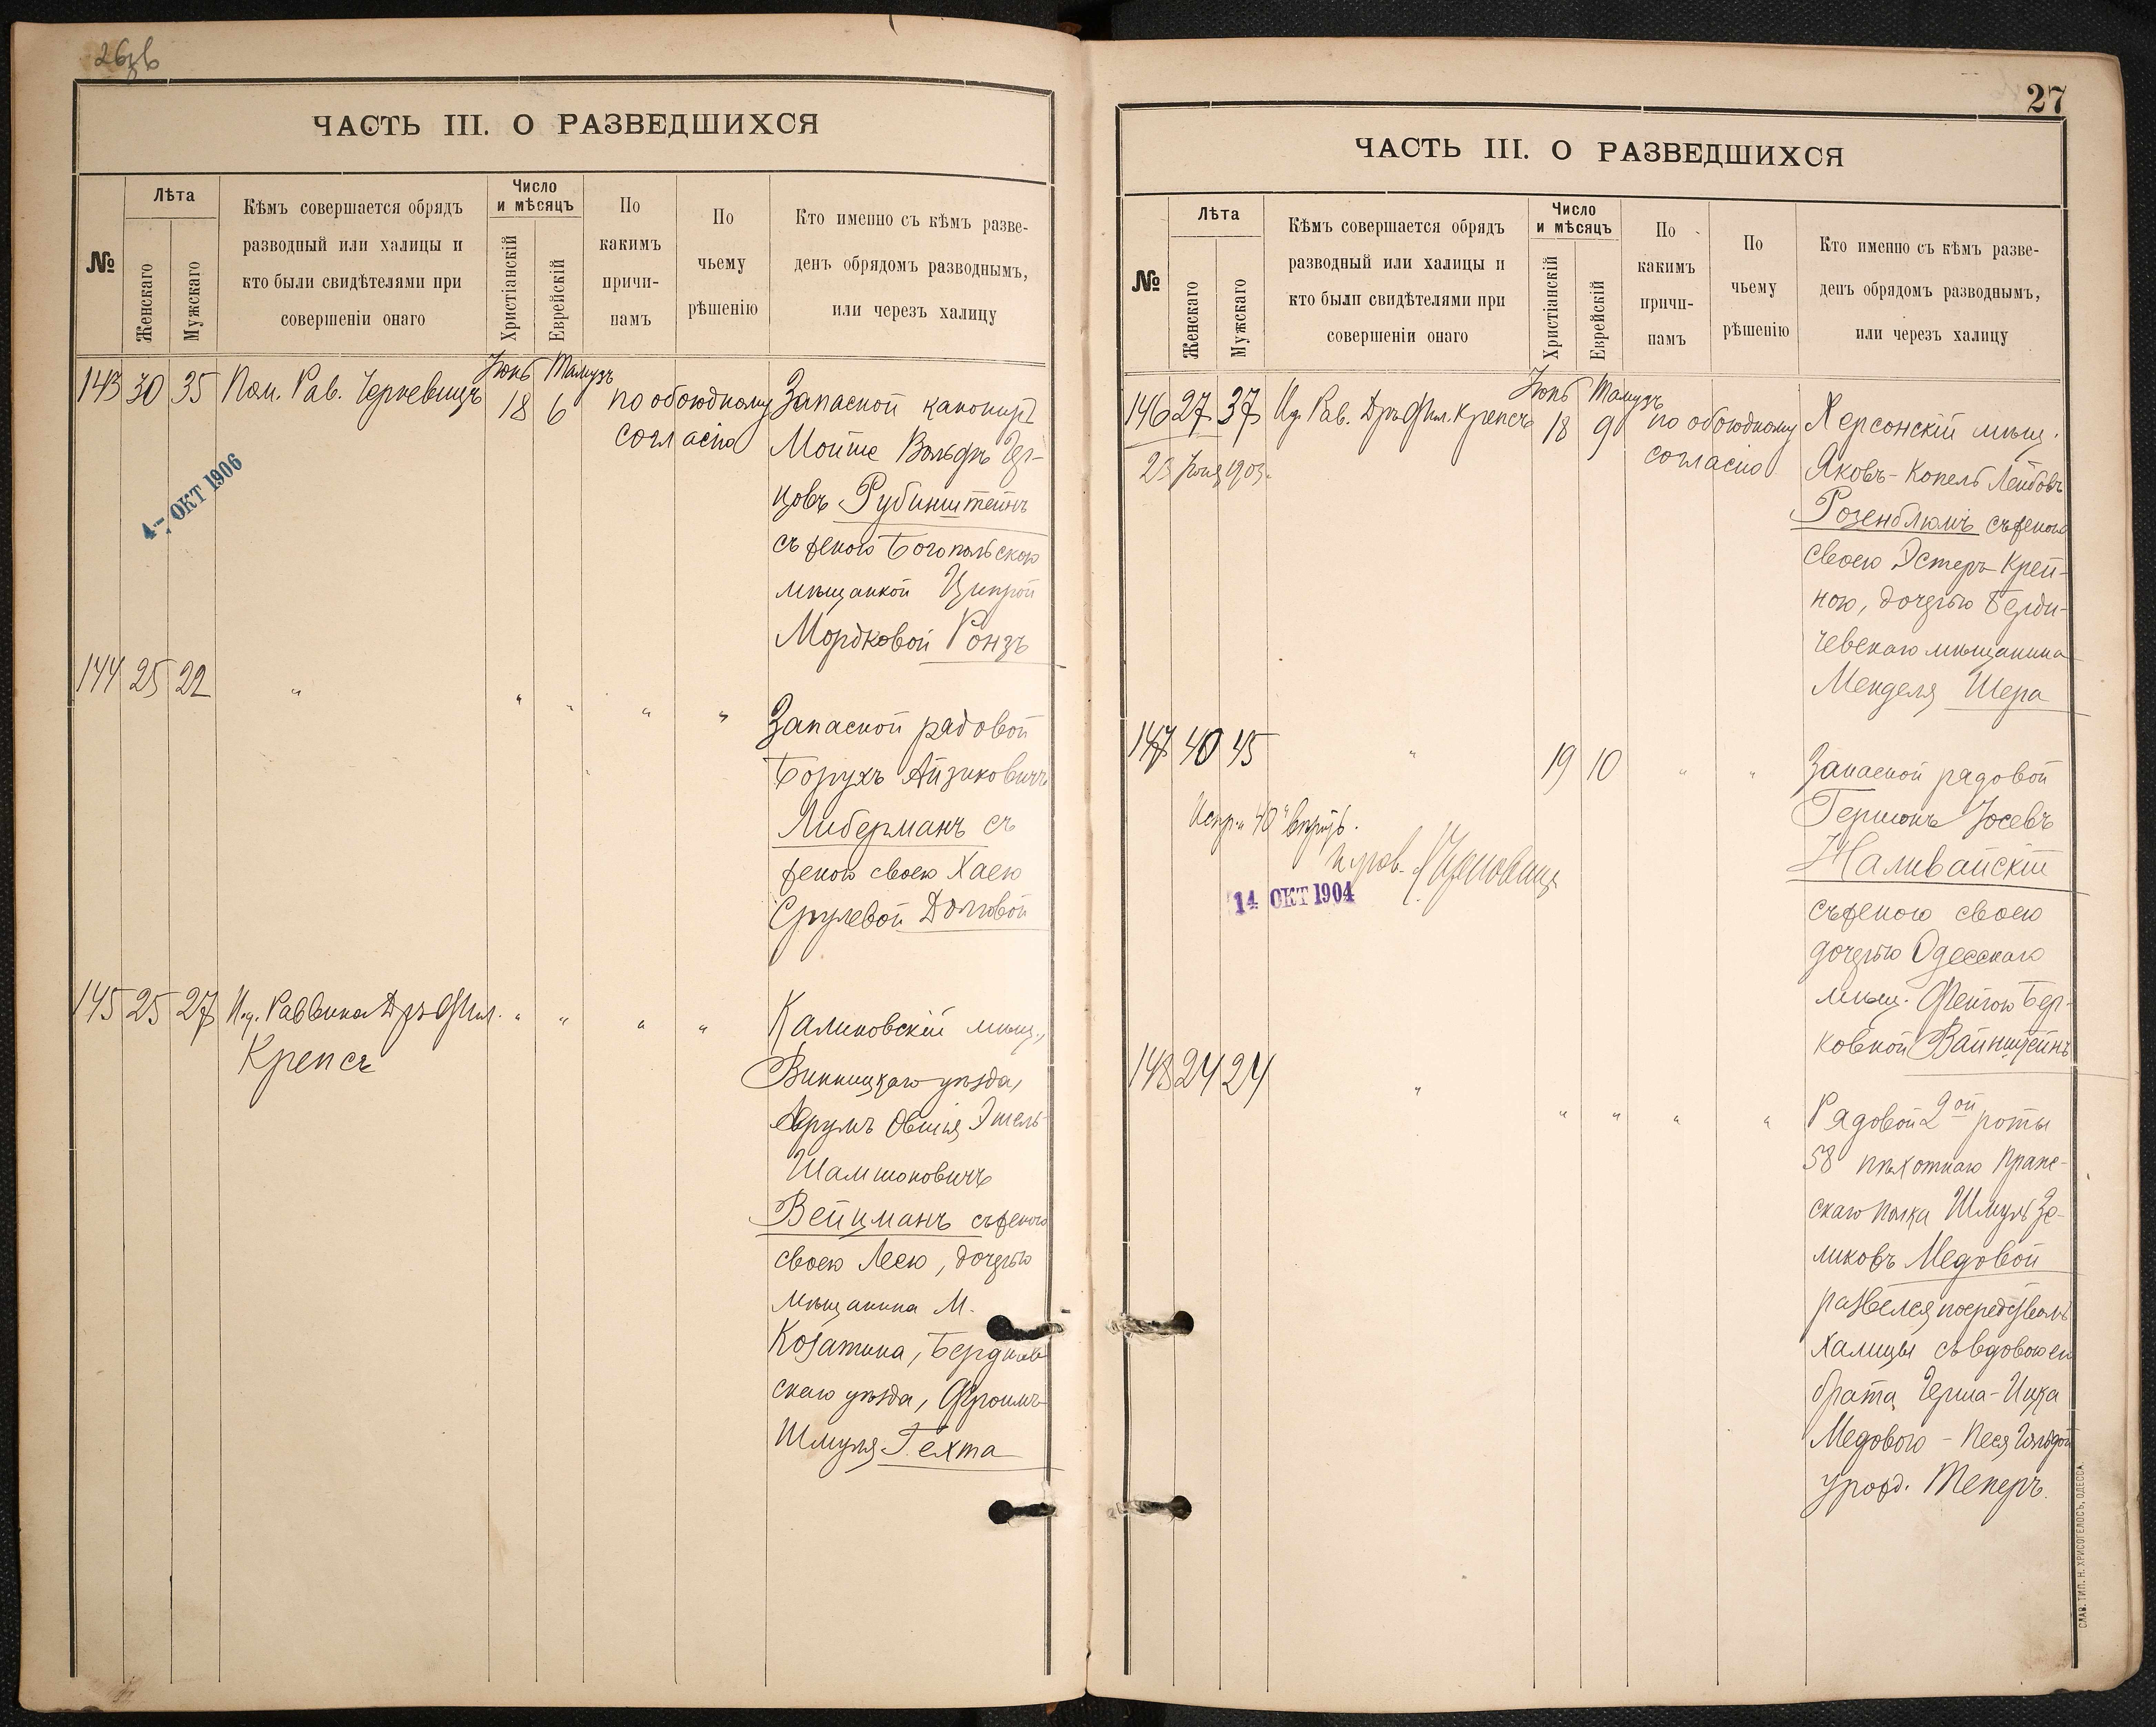 26 об
ЧАСТЬ III. О РАЗВЕДШИХСЯ
№
Лѣта
Женскаго
Мужскаго
Кѣмъ совершается обрядъ
разводный или халицы и
кто были свидѣтелями при
совершеніи онаго
Число
и мѣсяцъ
Христіанскій
Еврейскій
По
какимъ
причи-
намъ
По
чьему
рѣшенію
Кто именно съ кѣмъ разве-
денъ обрядомъ разводнымъ,
или черезъ халицу
143 30 35 Пом. Рав.
Іюнь Тамузъ
18 6
по обоюдному
согласію
Запасной канониръ
Мойше Вольфъ Гер-
цовъ Рубинштейнъ
съ женою Богопольскою
мѣщанкой Ципрой
Мордковой Ронзъ
4- ОКТ 1906
144 25 22 " " " " "
Запасной рядовой
Борухъ Айзиковичъ
Либерманъ съ
женою своею Хаею
Срулевой Долговой
145 25 27 И.д. Раввина Дръ Фил. " " " "
Крепсъ
Калиновскій мѣщ.,
Винницкаго уѣзда,
Аврумъ Овшія Эшель
Шамшоновичъ
Вейцманъ съ женою
своею Леею, дочерью
мѣщанина М.
Козатина, Бердичев
скаго уѣзда, Фроимъ
Шмуля Гехта
27
ЧАСТЬ III. О РАЗВЕДШИХСЯ
№
Лѣта
Женскаго
Мужскаго
Кѣмъ совершается обрядъ
разводный или халицы и
кто были свидѣтелями при
совершеніи онаго
Число
и мѣсяцъ
Христіанскій
Еврейскій
По
какимъ
причи-
намъ
По
чьему
рѣшенію
Кто именно съ кѣмъ разве-
денъ обрядомъ разводнымъ,
или черезъ халицу
146 27 37 И.д. Рав. Дръ Фил. Крепсъ
Іюнь Тамузъ
18 9
по обоюдному
согласію
23 Іюня 1903.
Херсонскій мѣщ.
Яковъ-Копель Лейбовъ
Розенблюмъ съ женою
своею Эстеръ Крей-
ною, дочерью Берди-
чевскаго мѣщанина
Менделя Шера
147 40 45 " 19 10 " "
Испр. "40" вѣрить.
14 ОКТ 1904
Запасной рядовой
Гершонъ Іосевъ
Наливайскій
съ женою своею
дочерью Одесскаго
мѣщ. Фейгою Бер-
ковной Вайнштейнъ
148 24 24 " " " " "
Рядовой 2ой роты
58 пѣхотнаго Праг-
скаго полка Шмуль Зе-
ликовъ Медовой
развелся посредствомъ
халицы съ вдовою его
брата Герша-Ицка
Медового - Песя Гольдой
урожд. Теперъ.
СЛАВ. ТИП. Н. ХРИСОГЕЛОСЪ, ОДЕССА.